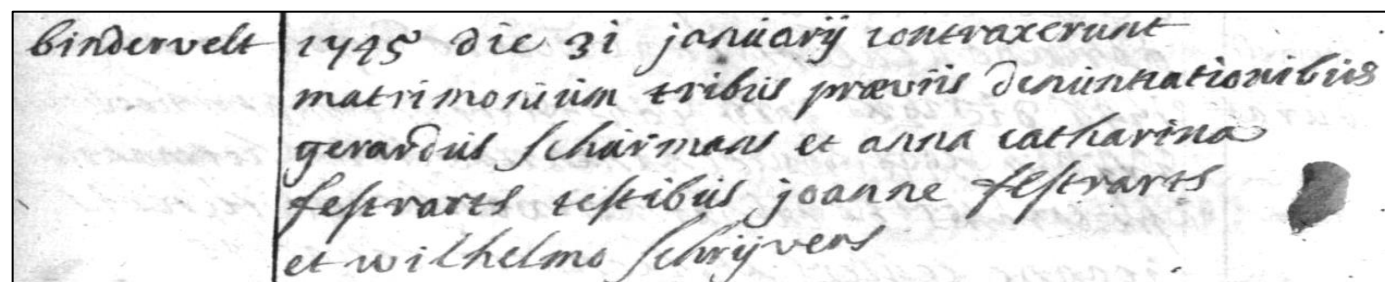 bindervelt
1745 die 31 januarij contraxerunt
matrimonium tribus præviis denuntiationibus
gerardus schurmans et anna catharina
festrarts testibus joanne festrarts
et wilhelmo schrijvers